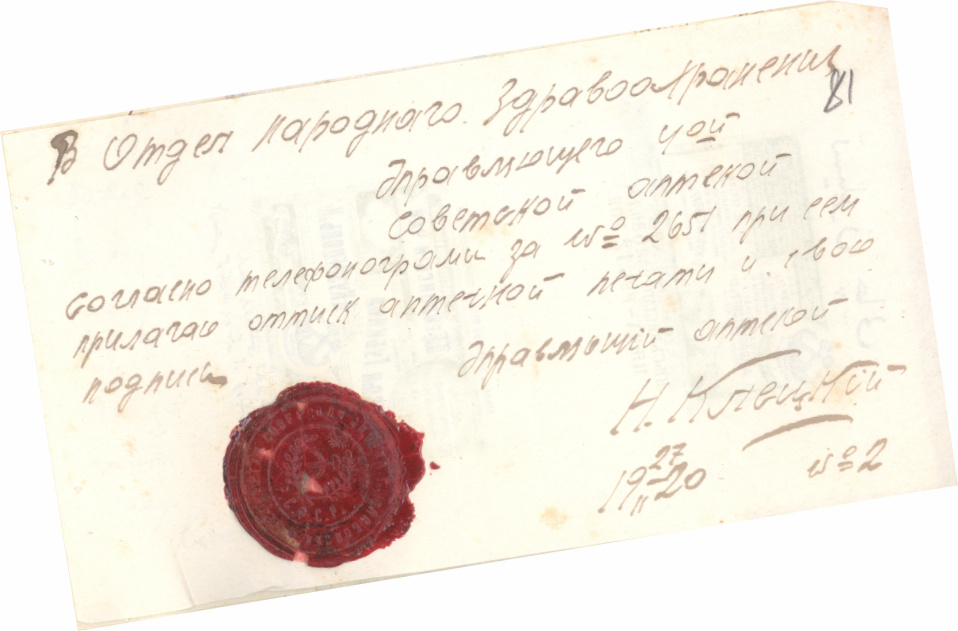 В Отдел народнаго Здравоохранения
81
Управляющего
Советской аптекой
Согласно телефонограми за № 2651 при сем
прилагаю оттиск аптечной печати и свою
подпись
Управляющий аптекой
Н. Клецкій
19 27/II 20 № 2